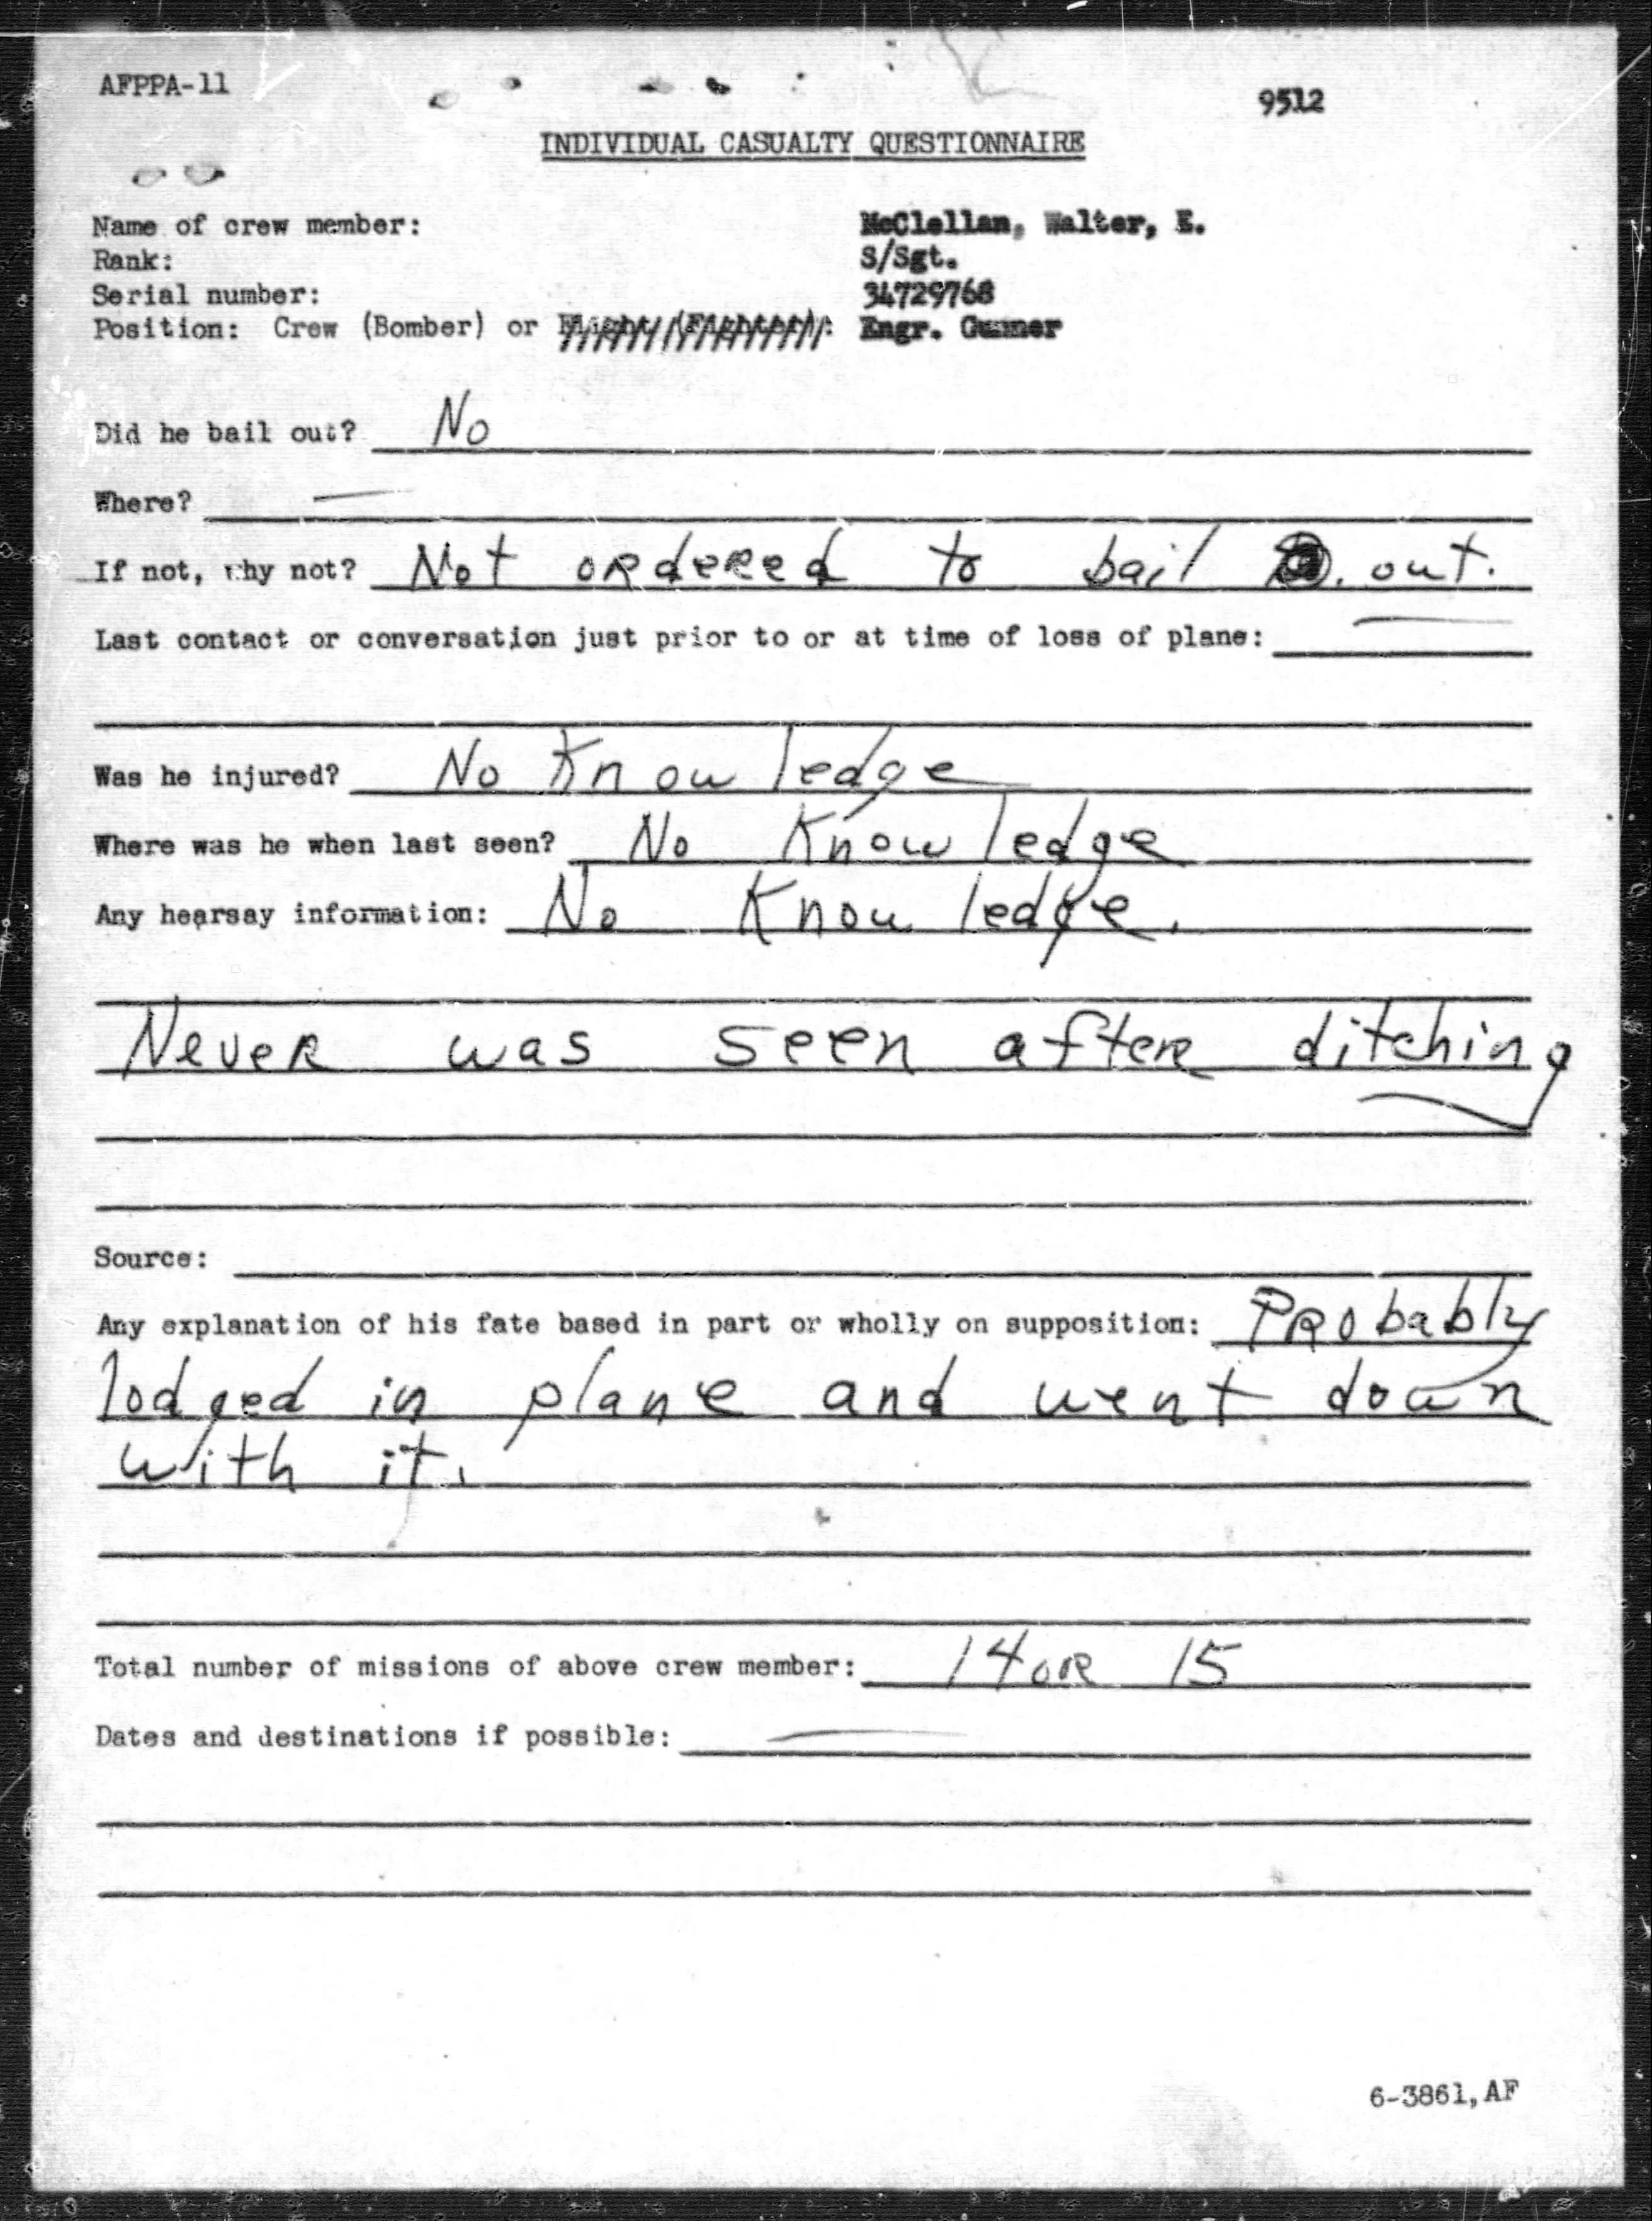 AFPPA-11
9512
INDIVIDUAL CASUALTY QUESTIONNAIRE
Name of crew member: McClellan, Walter, E.
Rank: S/Sgt.
Serial number: 34729768
Position: Crew (Bomber) or Flight (Fighter): Engr. Gunner
Did he bail out? No
Where? —
If not, why not? Not ordered to bail out.
Last contact or conversation just prior to or at time of loss of plane: —
Was he injured? No Knowledge
Where was he when last seen? No Knowledge
Any hearsay information: No Knowledge.
Never was seen after ditching
Source:
Any explanation of his fate based in part or wholly on supposition: Probably
lodged in plane and went down
with it.
Total number of missions of above crew member: 14 or 15
Dates and destinations if possible: —
6-3861, AF